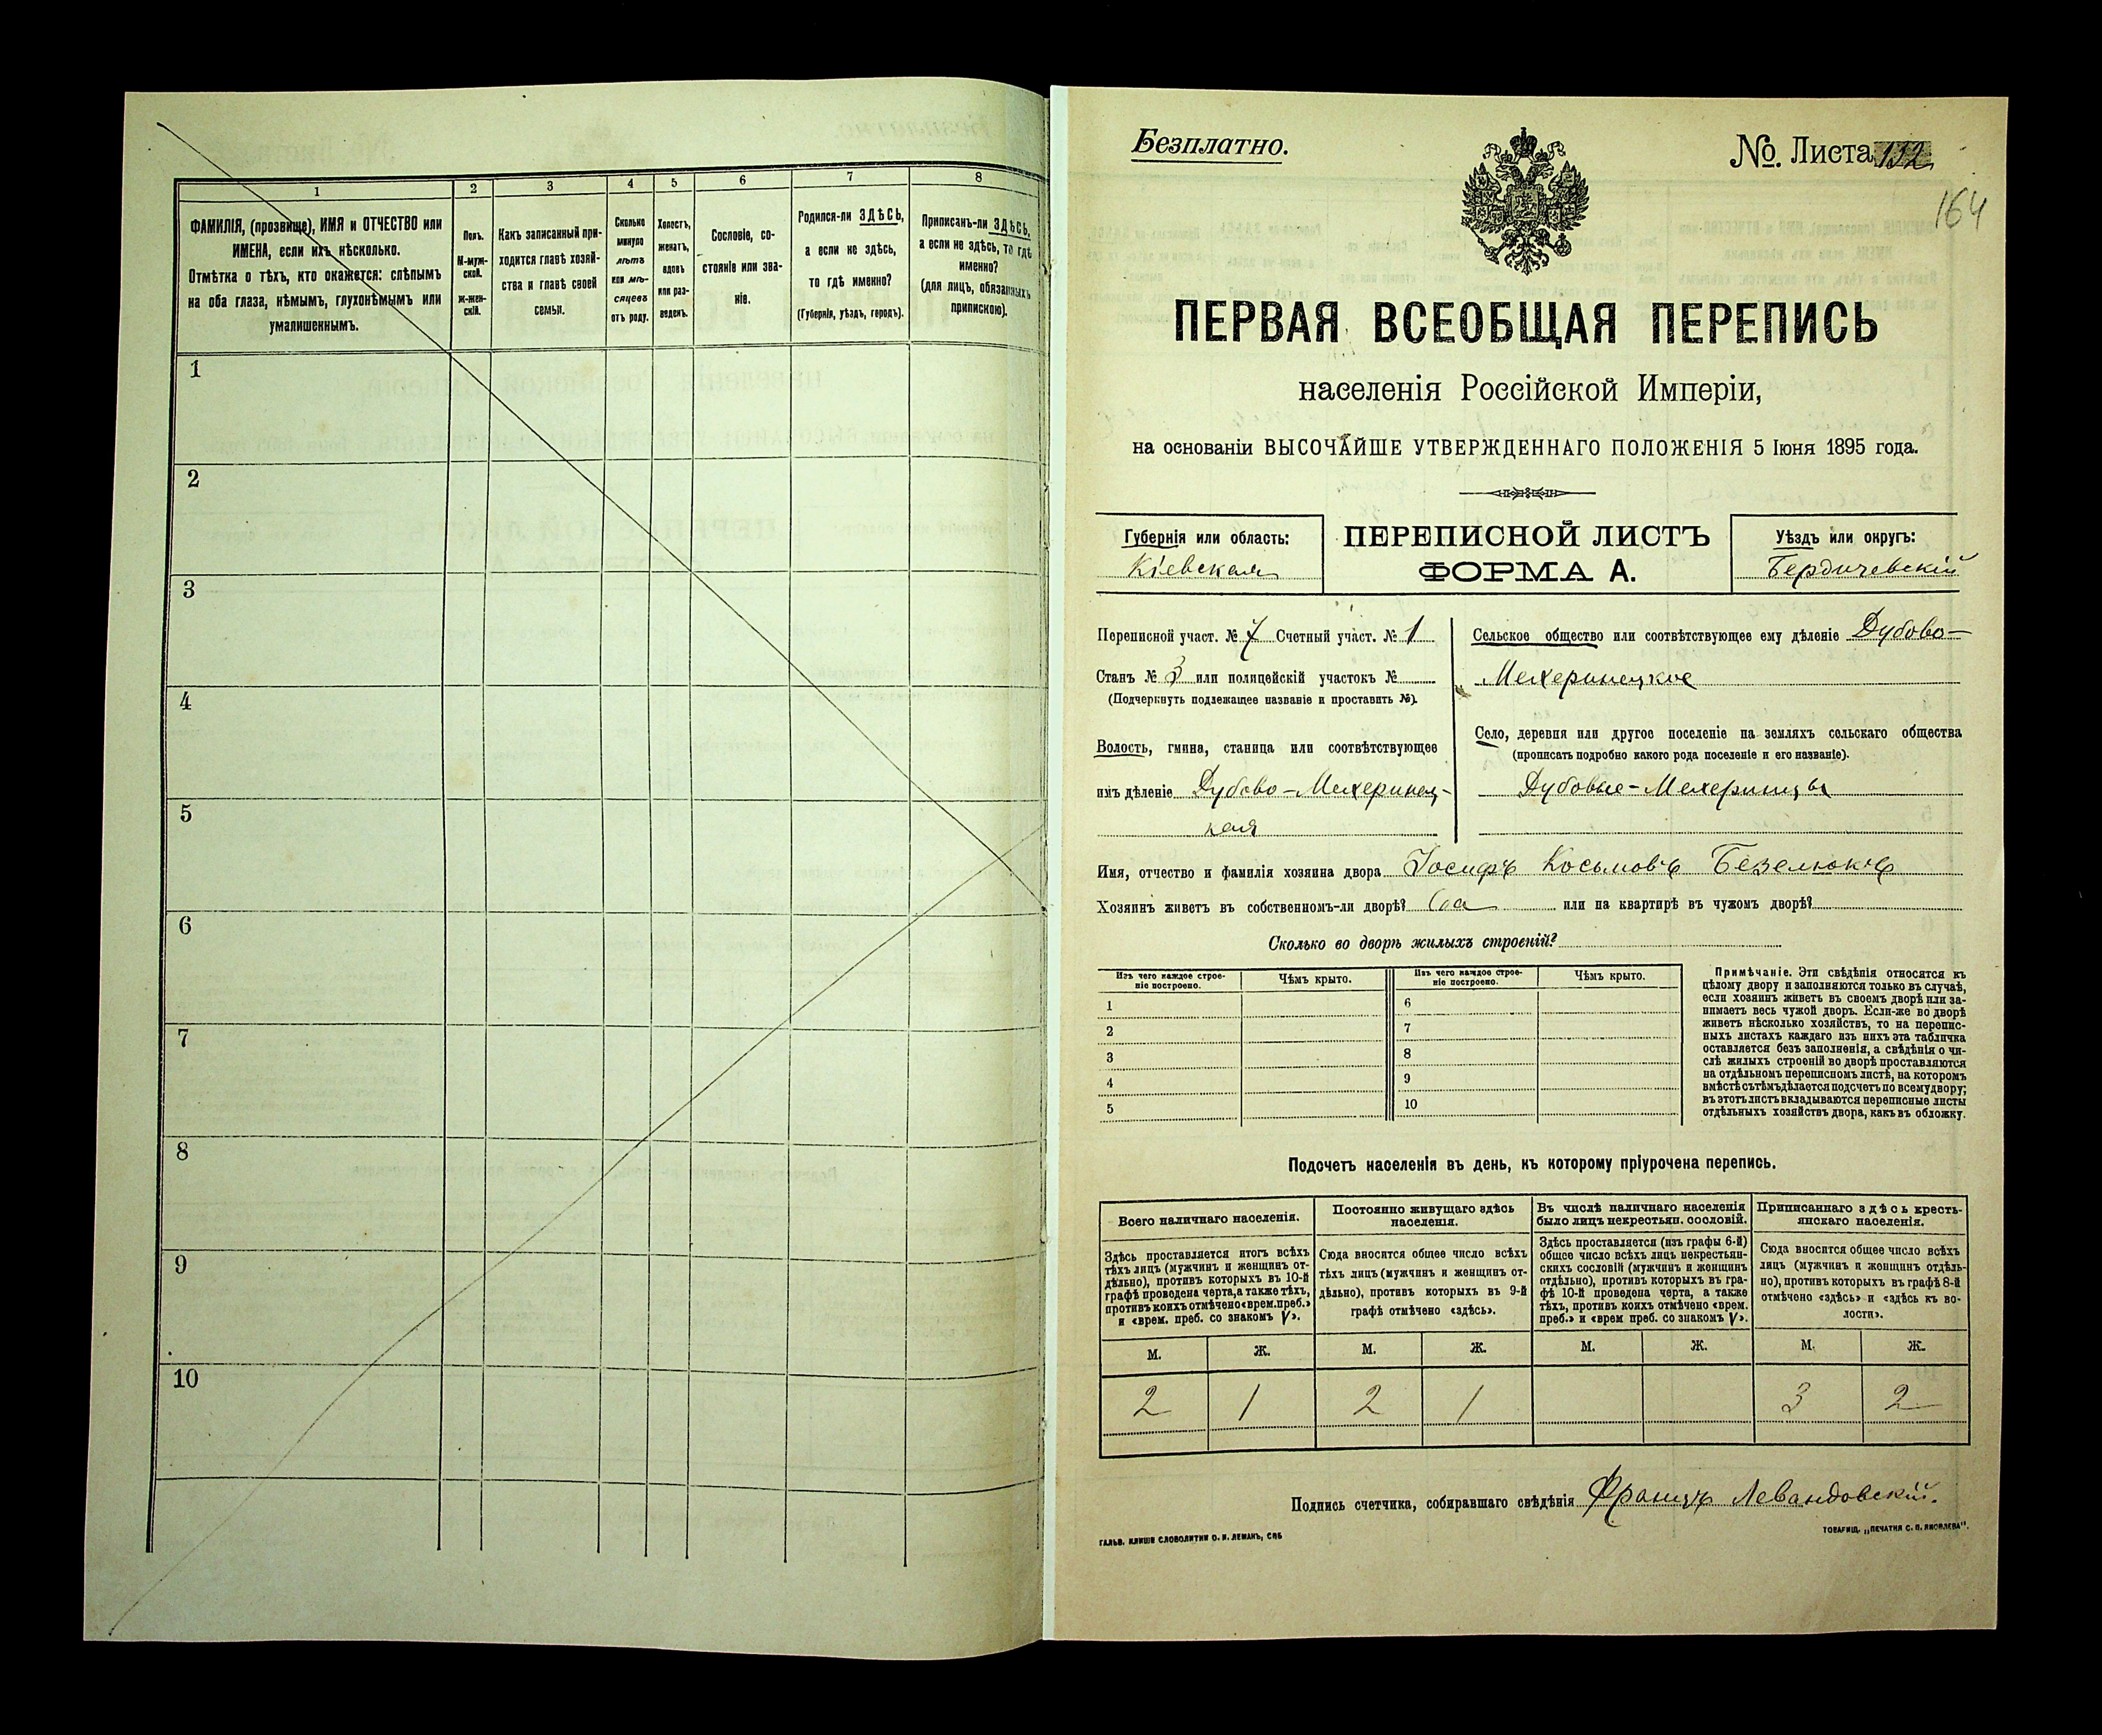 1
2
3
4
5
6
7
8
ФАМИЛІЯ, (прозвище), ИМЯ и ОТЧЕСТВО или
ИМЕНА, если ихъ нѣсколько.
Отмѣтка о тѣхъ, кто окажется: слѣпымъ
на оба глаза, нѣмымъ, глухонѣмымъ или
умалишеннымъ.
Полъ.
М-муж-
ской.
ж-жен-
скій.
Какъ записанный при-
ходится главѣ хозяй-
ства и главѣ своей
семьи.
Сколько
минуло
лѣтъ
или мѣ-
сяцевъ
отъ роду.
Холостъ,
женатъ,
вдовъ
или раз-
веденъ.
Сословіе, со-
стояніе или зва-
ніе.
Родился-ли ЗДѢСЬ,
а если не здѣсь,
то гдѣ именно?
(Губернія, уѣздъ, городъ).
Приписанъ-ли ЗДѢСЬ,
а если не здѣсь, то гдѣ
именно?
(для лицъ, обязанныхъ
припискою).
1
2
3
4
5
6
7
8
9
10
Безплатно.
№. Листа 132
164
ПЕРВАЯ ВСЕОБЩАЯ ПЕРЕПИСЬ
населенія Россійской Имперіи,
на основаніи ВЫСОЧАЙШЕ УТВЕРЖДЕННАГО ПОЛОЖЕНІЯ 5 Іюня 1895 года.
Губернія или область:
Кіевская
ПЕРЕПИСНОЙ ЛИСТЪ
ФОРМА А.
Уѣздъ или округъ:
Бердичевскій
Переписной участ. № 7 Счетный участ. № 1
Станъ № 3 или полицейскій участокъ №
(Подчеркнуть подлежащее названіе и проставить №).
Волость, гмина, станица или соотвѣтствующее
имъ дѣленіе Дубово-Мехеринец-
кая
Сельское общество или соотвѣтствующее ему дѣленіе Дубово-
Мехеринецкое
Село, деревня или другое поселеніе на земляхъ сельскаго общества
(прописать подробно какого рода поселеніе и его названіе).
Дубовые-Мехеринцы
Имя, отчество и фамилія хозяина двора Іосифъ Косьмовъ Безелюкъ
Хозяинъ живетъ въ собственномъ-ли дворѣ? или на квартирѣ въ чужомъ дворѣ?
Сколько во дворѣ жилыхъ строеній?
Изъ чего каждое строе-
ніе построено.
Чѣмъ крыто.
Изъ чего каждое строе-
ніе построено.
Чѣмъ крыто.
1
2
3
4
5
6
7
8
9
10
Примѣчаніе. Эти свѣдѣнія относятся къ
цѣлому двору и заполняются только въ случаѣ,
если хозяинъ живетъ въ своемъ дворѣ или за-
нимаетъ весь чужой дворъ. Если-же во дворѣ
живетъ нѣсколько хозяйствъ, то на перепис-
ныхъ листахъ каждаго изъ нихъ эта табличка
оставляется безъ заполненія, а свѣдѣнія о чи-
слѣ жилыхъ строеній во дворѣ проставляются
на отдѣльномъ переписномъ листѣ, на которомъ
вмѣстѣ съ тѣмъ дѣлается подсчетъ по всему двору;
въ этотъ листъ вкладываются переписные листы
отдѣльныхъ хозяйствъ двора, какъ въ обложку.
Подсчетъ населенія въ день, къ которому пріурочена перепись.
Всего наличнаго населенія.
Здѣсь проставляется итогъ всѣхъ
тѣхъ лицъ (мужчинъ и женщинъ от-
дѣльно), противъ которыхъ въ 10-й
графѣ проведена черта, а также тѣхъ,
противъ коихъ отмѣчено «врем. преб.»
и «врем. преб. со знакомъ V».
Постоянно живущаго здѣсь
населенія.
Сюда вносится общее число всѣхъ
тѣхъ лицъ (мужчинъ и женщинъ от-
дѣльно), противъ которыхъ въ 9-й
графѣ отмѣчено «здѣсь».
Въ числѣ наличнаго населенія
было лицъ некрестьян. сословій.
Здѣсь проставляется (изъ графы 6-й)
общее число всѣхъ лицъ некрестьян-
скихъ сословій (мужчинъ и женщинъ
отдѣльно), противъ которыхъ въ гра-
фѣ 10-й проведена черта, а также
тѣхъ, противъ коихъ отмѣчено «врем.
преб.» и «врем преб. со знакомъ V».
Приписаннаго здѣсь кресть-
янскаго населенія.
Сюда вносится общее число всѣхъ
лицъ (мужчинъ и женщинъ отдѣль-
но), противъ которыхъ въ графѣ 8-й
отмѣчено «здѣсь» и «здѣсь къ во-
лости».
М. Ж. М. Ж. М. Ж. М. Ж.
2 1 2 1 3 2
Подпись счетчика, собиравшаго свѣдѣнія Францъ Левандовскій.
ГАЛЬВ. КЛИШЕ СЛОВОЛИТНИ О. И. ЛЕМАНЪ, СПБ
ТОВАРИЩ. „ПЕЧАТНЯ С. П. ЯКОВЛЕВА".